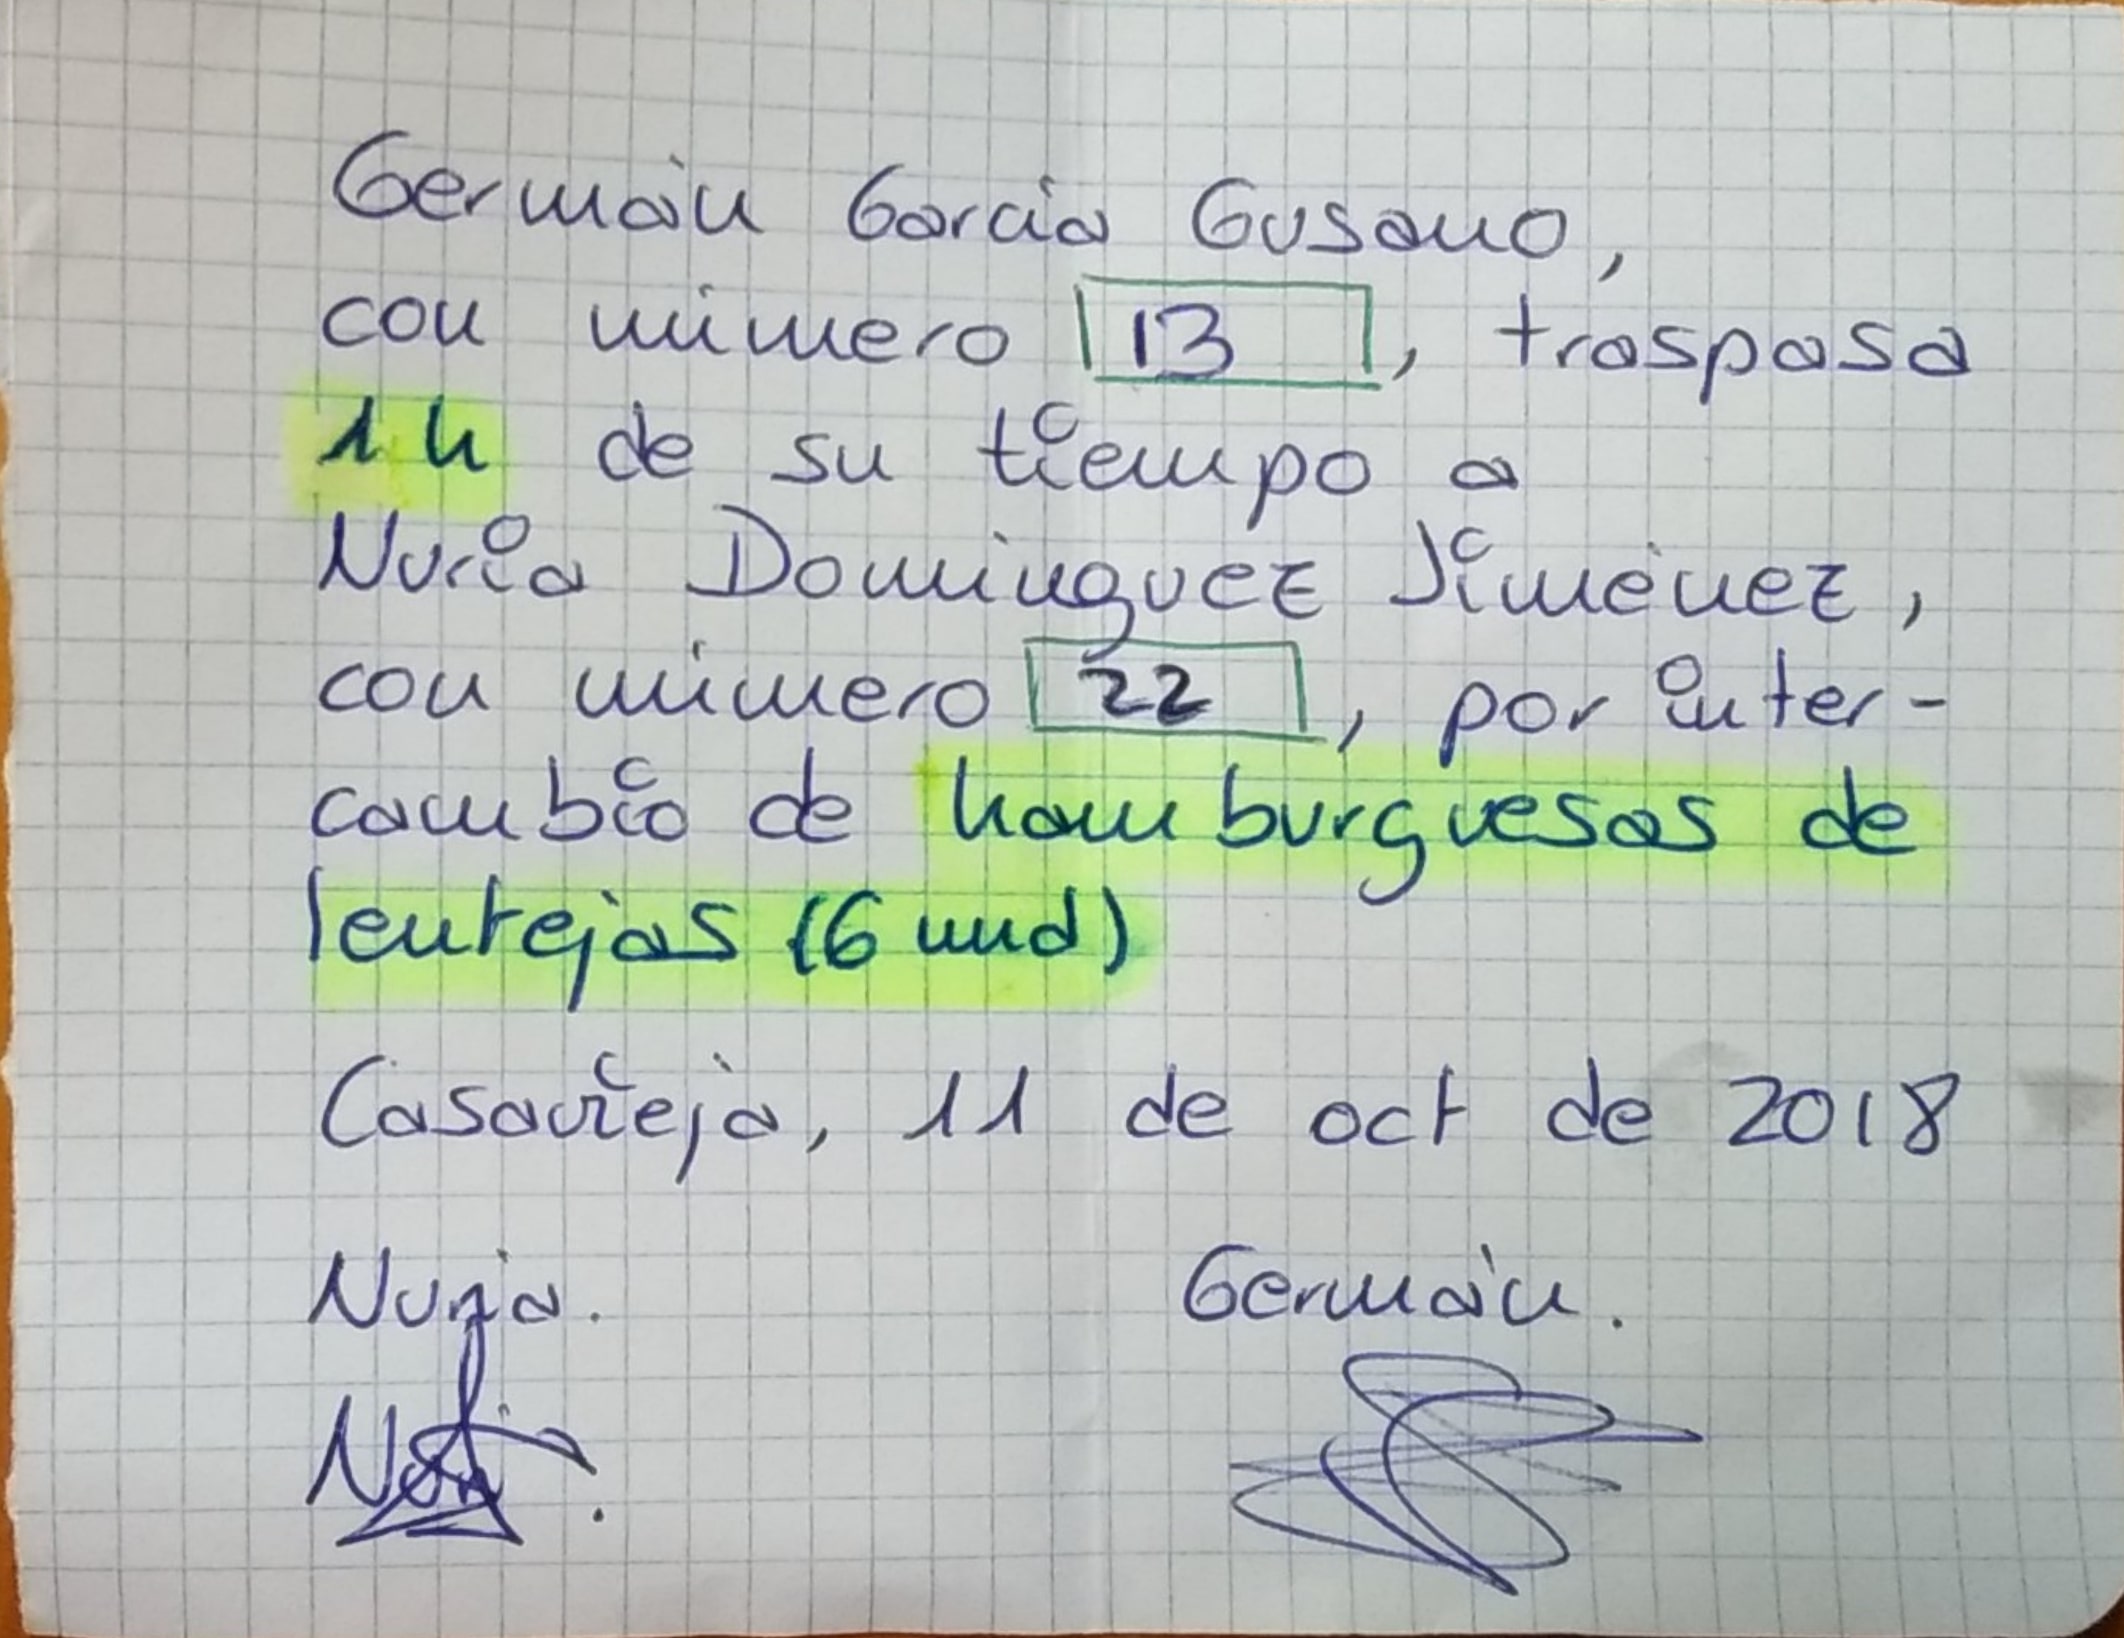 Germán García Gusano,
con número 13, traspasa
1 h de su tiempo a
Nuria Domínguez Jiménez,
con número 22, por inter-
cambio de hamburguesas de
lentejas (6 und)
Casavieja, 11 de oct de 2018
Nuria. Germán.